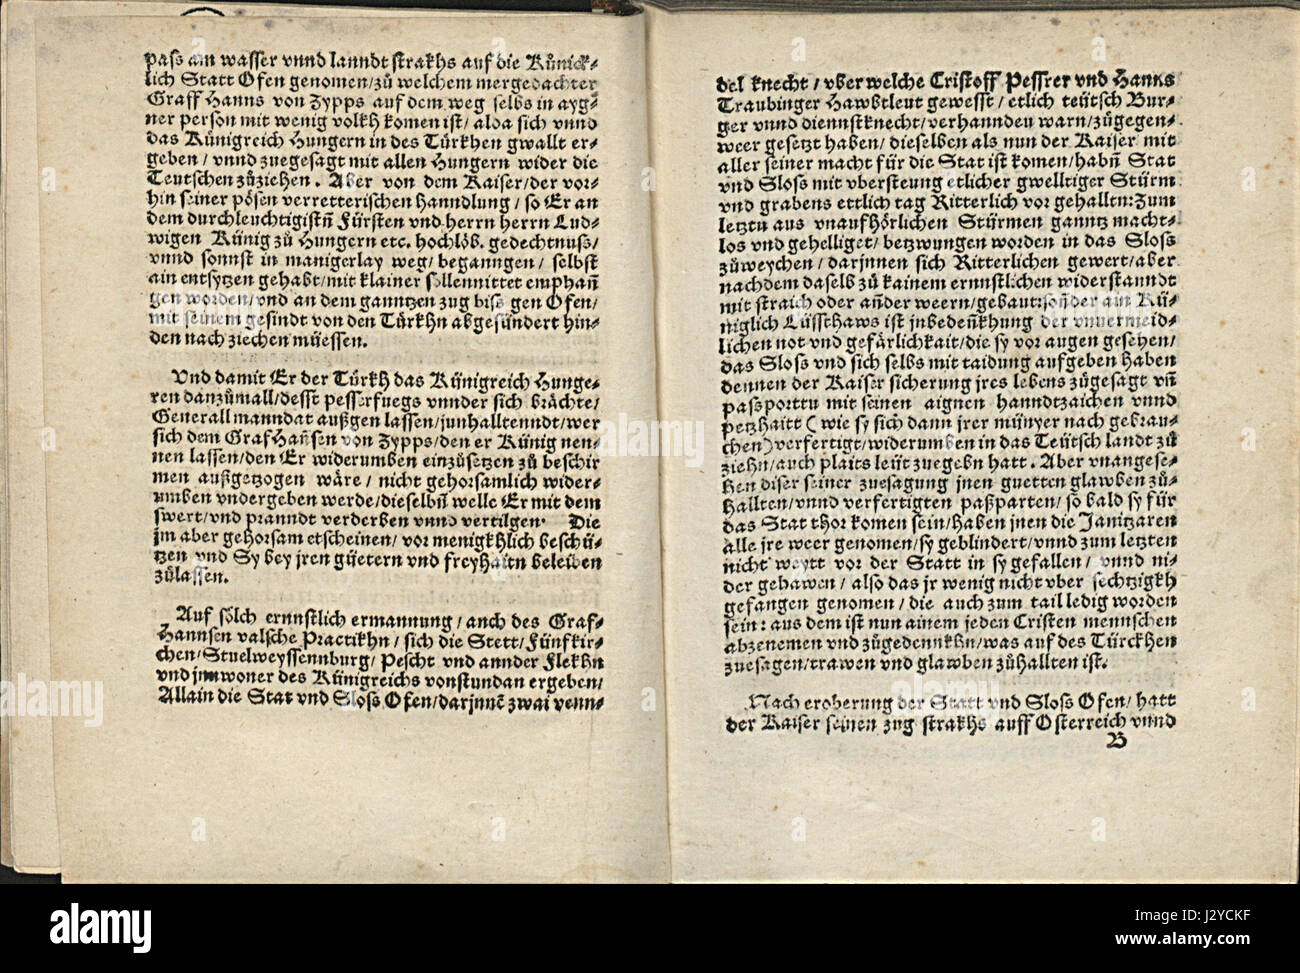 pass am wasser vnnd lanndt strakhs auf die Künick-
lich Statt Ofen genomen/zů welchem mergedachter
Graff Hanns von Zypps auf dem weg selbs in ayg-
ner person mit wenig volkh komen ist/alda sich vnnd
das Künigreich Hungern in des Türkhen gwallt er-
geben/vnnd zuegesagt mit allen Hungern wider die
Teutschen zůziehen. Aber von dem Kaiser/der vor-
hin seiner pösen verretterischen Hanndlung/so Er an
dem durchleuchtigistn̄ Fürsten vnd herrn herrn Lud-
wigen Künig zů Hungern etc. hochlöb. gedechtnuss/
vnnd sonnst in manigerlay weg/begangen/selbst
ain entsytzen gehabt/mit klainer sollennittet emphan̄
gen worden/vnd an dem ganntzen zug biss gen Ofen/
mit seinem gesindt von den Türkhn abgesündert hin-
den nach ziechen müessen.
Vnd damit Er der Türkh das Künigreich Hunge-
ren danzůmall/desst pesserfuegs vnnder sich brächte/
Generall manndat außgen lassen/junhalltenndt/wer
sich dem Graf Hansen von Zypps/den er Künig nen-
nen lassen/den Er widerumben einzůsetzen zů beschir
men außgetzogen wäre/nicht gehorsamlich wider-
umben vndergeben werde/dieselbn̄ welle Er mit dem
swert/vnd pranndt verderben vnnd vertilgen. Die
jm aber gehorsam etscheinen/vor menigkhlich beschü-
tzen vnd Sy bey jren güetern vnd freyhaitn beleiben
zůlassen.
Auf sölch ernnstlich ermannung/auch des Graf-
Hannsen valsche Practikhn/sich die Stett/Fünfkir-
chen/Stuelweyssennburg/Pescht vnd annder Flekhn
vnd jnnwoner des Künigreichs vonstundan ergeben/
Allain die Stat vnd Sloss Ofen/darjnnē zwai venn-
del knecht/vber welche Cristoff Pessrer vnd Hanns
Traubinger Hawbtleut gewesst/etlich teütsch Bur-
ger vnnd diennstknecht/verhannden warn/zůgegen-
weer gesetzt haben/dieselben als nun der Kaiser mit
aller seiner macht für die Stat ist komen/habn̄ Stat
vnd Sloss mit vbersteung etlicher gwelltiger Stürm
vnd grabens ettlich tag Ritterlich vor gehallten: Zum
letztn aus vnaufhörlichen Stürmen ganntz macht-
los vnd gehelliget/betzwungen worden in das Sloss
zůweychen/darjnnen sich Ritterlichen gewert/aber
nachdem daselb zů kainem ernnstlichen widerstanndt
mit straich oder an̄der weern/gebaut: son̄der am Kü-
niglich Lüssthaws ist jnbeden̄khung der vnuermeid-
lichen not vnd gefärlichkait/die sy vor augen gesehen/
das Sloss vnd sich selbs mit taidung aufgeben haben
dennen der Kaiser sicherung jres lebens zůgesagt vn̄
passporttn mit seinen aignen hanndtzaichen vnnd
petzhaitt (wie sy sich dann jrer münyer nach gebrau-
chen) verfertigt/widerumben in das Teütsch landt zů
ziehn/auch plaits leüt zuegebn hatt. Aber vnangese-
hen diser seiner zuesagung jnen guetten glawben zů-
hallten/vnnd verfertigten paßparten/so bald sy für
das Stat thor komen sein/haben jnen die Janitzaren
alle jre weer genomen/sy geblindert/vnnd zum letzten
nicht weytt vor der Statt in sy gefallen/vnnd ni-
der gehawen/also das jr wenig nicht vber sechtzigkh
gefangen genomen/die auch zum tail ledig worden
sein: aus dem ist nun ainem jeden Cristen mennschen
abzenemen vnd zůgedennkhn/was auf des Türckhen
zuesagen/trawen vnd glawben zůhallten ist.
Nach eroberung der Statt vnd Sloss Ofen/hatt
der Kaiser seinen zug strakhs auff Osterreich vnnd
B
alamy
a
Image ID: J2YCKF
www.alamy.com